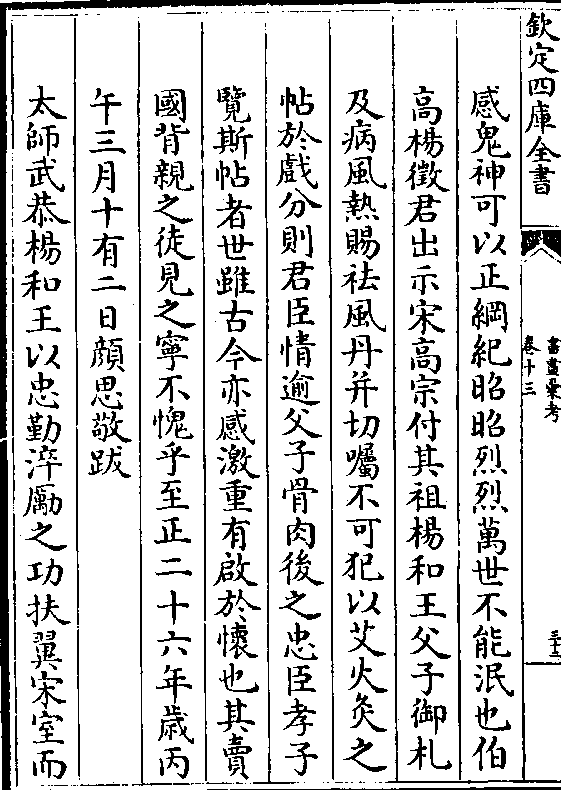 欽定四庫全書
書畫彚考
卷十三
三十三
感鬼神可以正綱紀昭昭烈烈萬世不能泯也伯
高楊徵君出示宋高宗付其祖楊和王父子御札
及病風熱賜祛風丹并切囑不可犯以艾火灸之
帖於戲分則君臣情逾父子骨肉後之忠臣孝子
覽斯帖者世雖古今亦感激重有啟於懷也其賣
國背親之徒見之寧不愧乎至正二十六年歲丙
午三月十有二日顔思敬跋
太師武恭楊和王以忠勤淬厲之功扶翼宋室而